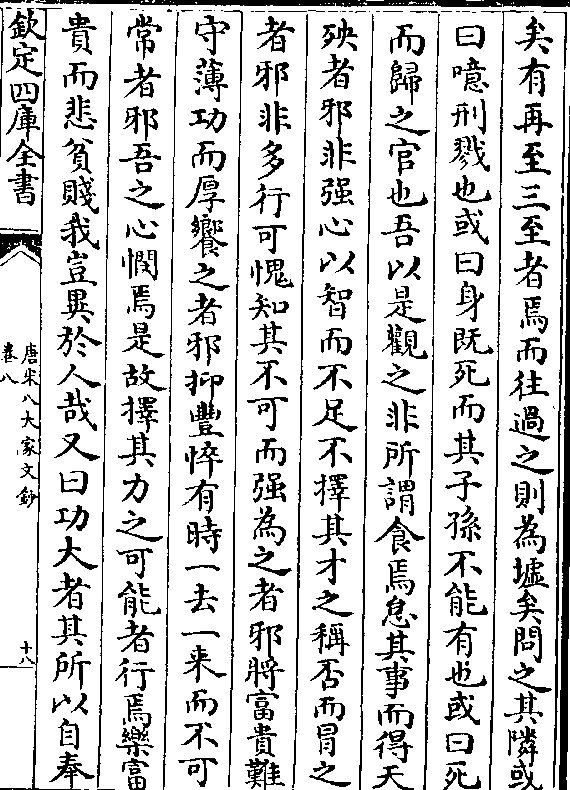 矣有再至三至者焉而往過之則為墟矣問之其隣或
曰噫刑戮也或曰身既死而其子孫不能有也或曰死
而歸之官也吾以是觀之非所謂食焉怠其事而得天
殃者邪非强心以智而不足不擇其才之稱否而冒之
者邪非多行可愧知其不可而强為之者邪將富貴難
守薄功而厚饗之者邪抑豐悴有時一去一来而不可
常者邪吾之心憫焉是故擇其力之可能者行焉樂富
貴而悲貧賤我豈異於人哉又曰功大者其所以自奉
欽定四庫全書
唐宋八大家文鈔
卷八
十八